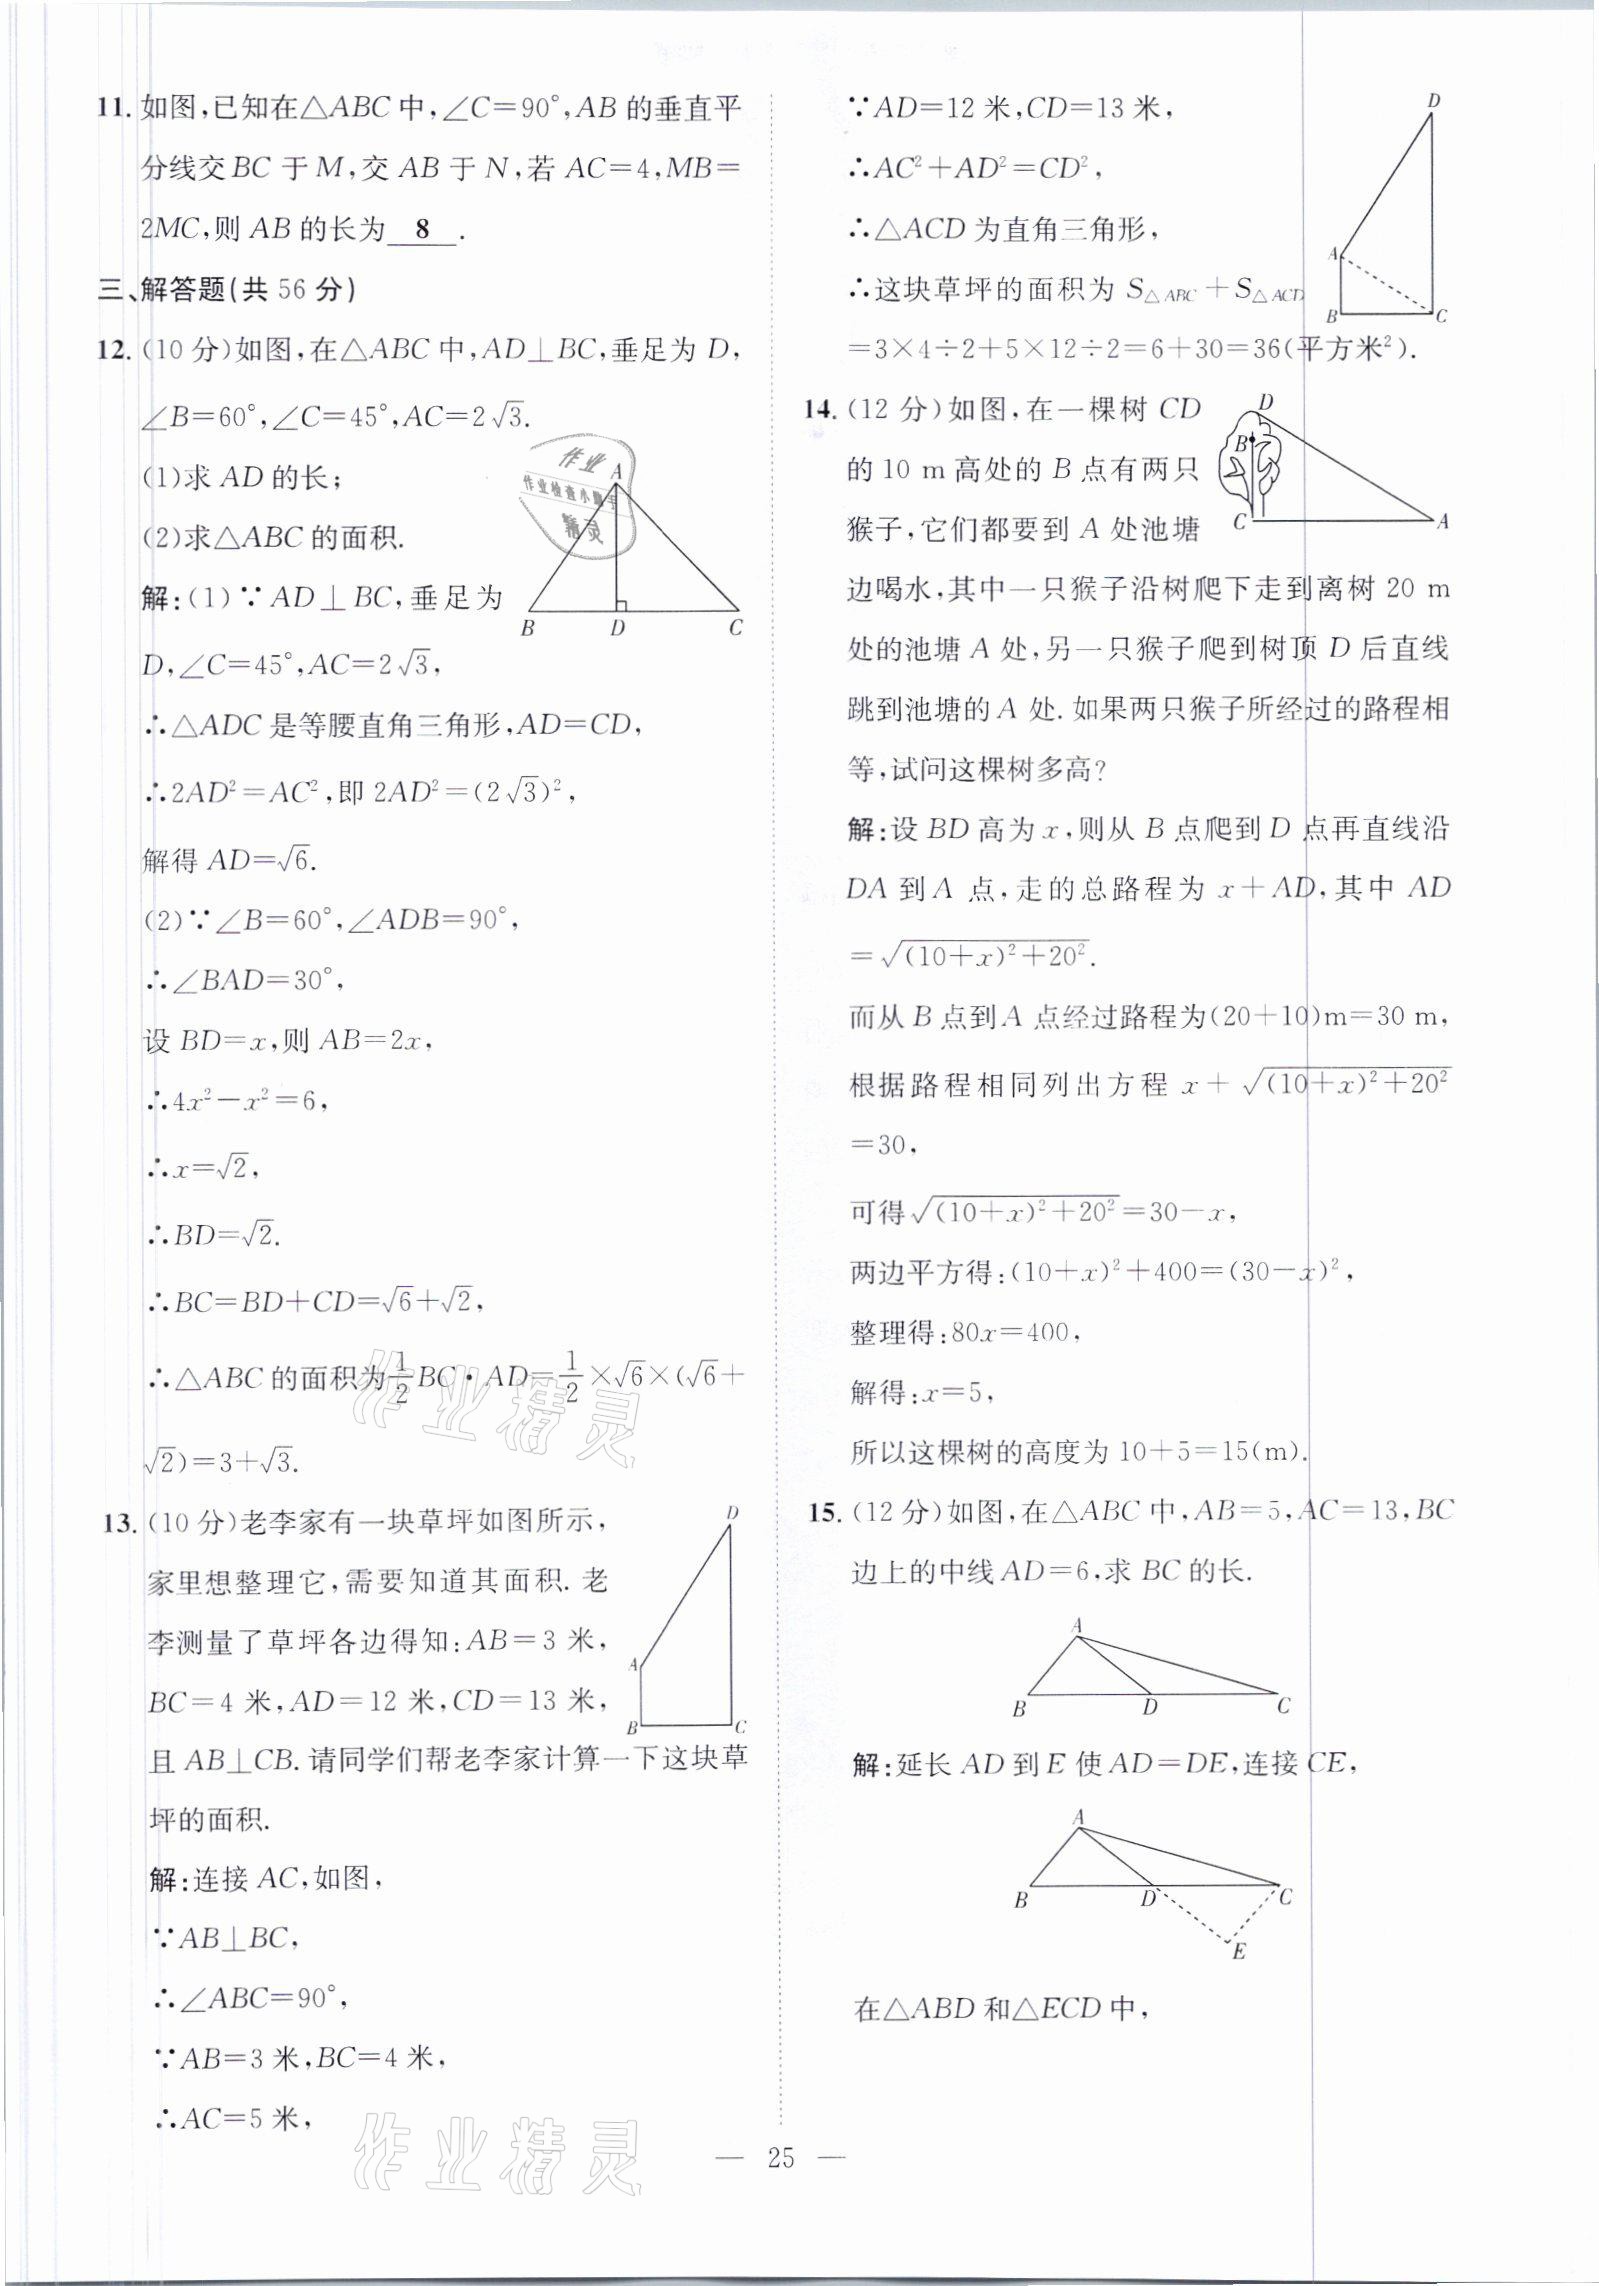 11. 如图,已知在△ABC中,∠C=90°,AB的垂直平
分线交BC于M,交AB于N,若AC=4,MB=
2MC,则AB的长为 8 .
三、解答题(共56分)
12. (10分)如图,在△ABC中,AD⊥BC,垂足为D,
∠B=60°,∠C=45°,AC=2√3.
(1)求AD的长;
(2)求△ABC的面积.
作业
作业检查小助手
精灵
A
B D C
解:(1)∵AD⊥BC,垂足为
D,∠C=45°,AC=2√3,
∴△ADC是等腰直角三角形,AD=CD,
∴2AD²=AC²,即2AD²=(2√3)²,
解得AD=√6.
(2)∵∠B=60°,∠ADB=90°,
∴∠BAD=30°,
设BD=x,则AB=2x,
∴4x²-x²=6,
∴x=√2,
∴BD=√2.
∴BC=BD+CD=√6+√2,
∴△ABC的面积为1/2BC·AD=1/2×√6×(√6+
√2)=3+√3.
作业精灵
13. (10分)老李家有一块草坪如图所示,
家里想整理它,需要知道其面积.老
李测量了草坪各边得知:AB=3米,
BC=4米,AD=12米,CD=13米,
且AB⊥CB.请同学们帮老李家计算一下这块草
坪的面积.
D
A
B C
解:连接AC,如图,
∵AB⊥BC,
∴∠ABC=90°,
∵AB=3米,BC=4米,
∴AC=5米,
作业精灵
∵AD=12米,CD=13米,
∴AC²+AD²=CD²,
∴△ACD为直角三角形,
∴这块草坪的面积为S△ABC+S△ACD
=3×4÷2+5×12÷2=6+30=36(平方米²).
D
A
B C
14. (12分)如图,在一棵树CD
的10 m高处的B点有两只
猴子,它们都要到A处池塘
边喝水,其中一只猴子沿树爬下走到离树20 m
处的池塘A处,另一只猴子爬到树顶D后直线
跳到池塘的A处.如果两只猴子所经过的路程相
等,试问这棵树多高?
D
B
C A
解:设BD高为x,则从B点爬到D点再直线沿
DA到A点,走的总路程为x+AD,其中AD
=√((10+x)²+20²).
而从B点到A点经过路程为(20+10)m=30 m,
根据路程相同列出方程x+√((10+x)²+20²)
=30,
可得√((10+x)²+20²)=30-x,
两边平方得:(10+x)²+400=(30-x)²,
整理得:80x=400,
解得:x=5,
所以这棵树的高度为10+5=15(m).
15. (12分)如图,在△ABC中,AB=5,AC=13,BC
边上的中线AD=6,求BC的长.
A
B D C
解:延长AD到E使AD=DE,连接CE,
A
B D C
E
在△ABD和△ECD中,
— 25 —